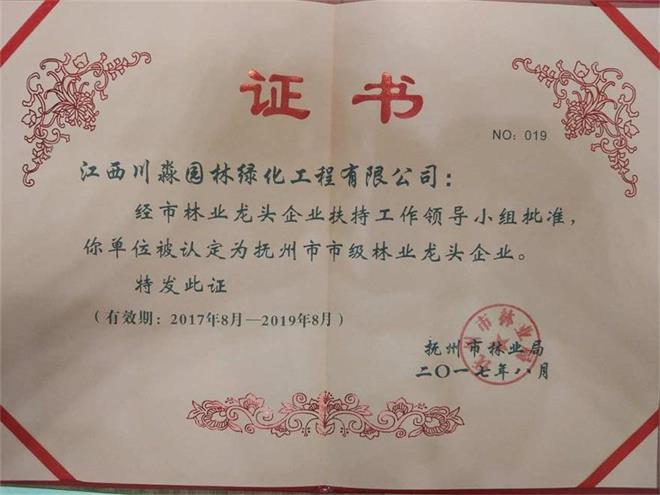 证书
NO：019
江西川淼园林绿化工程有限公司：
经市林业龙头企业扶持工作领导小组批准，
你单位被认定为抚州市市级林业龙头企业。
特发此证
（有效期：2017年8月—2019年8月）
抚州市林业局
二〇一七年八月
抚州市林业局